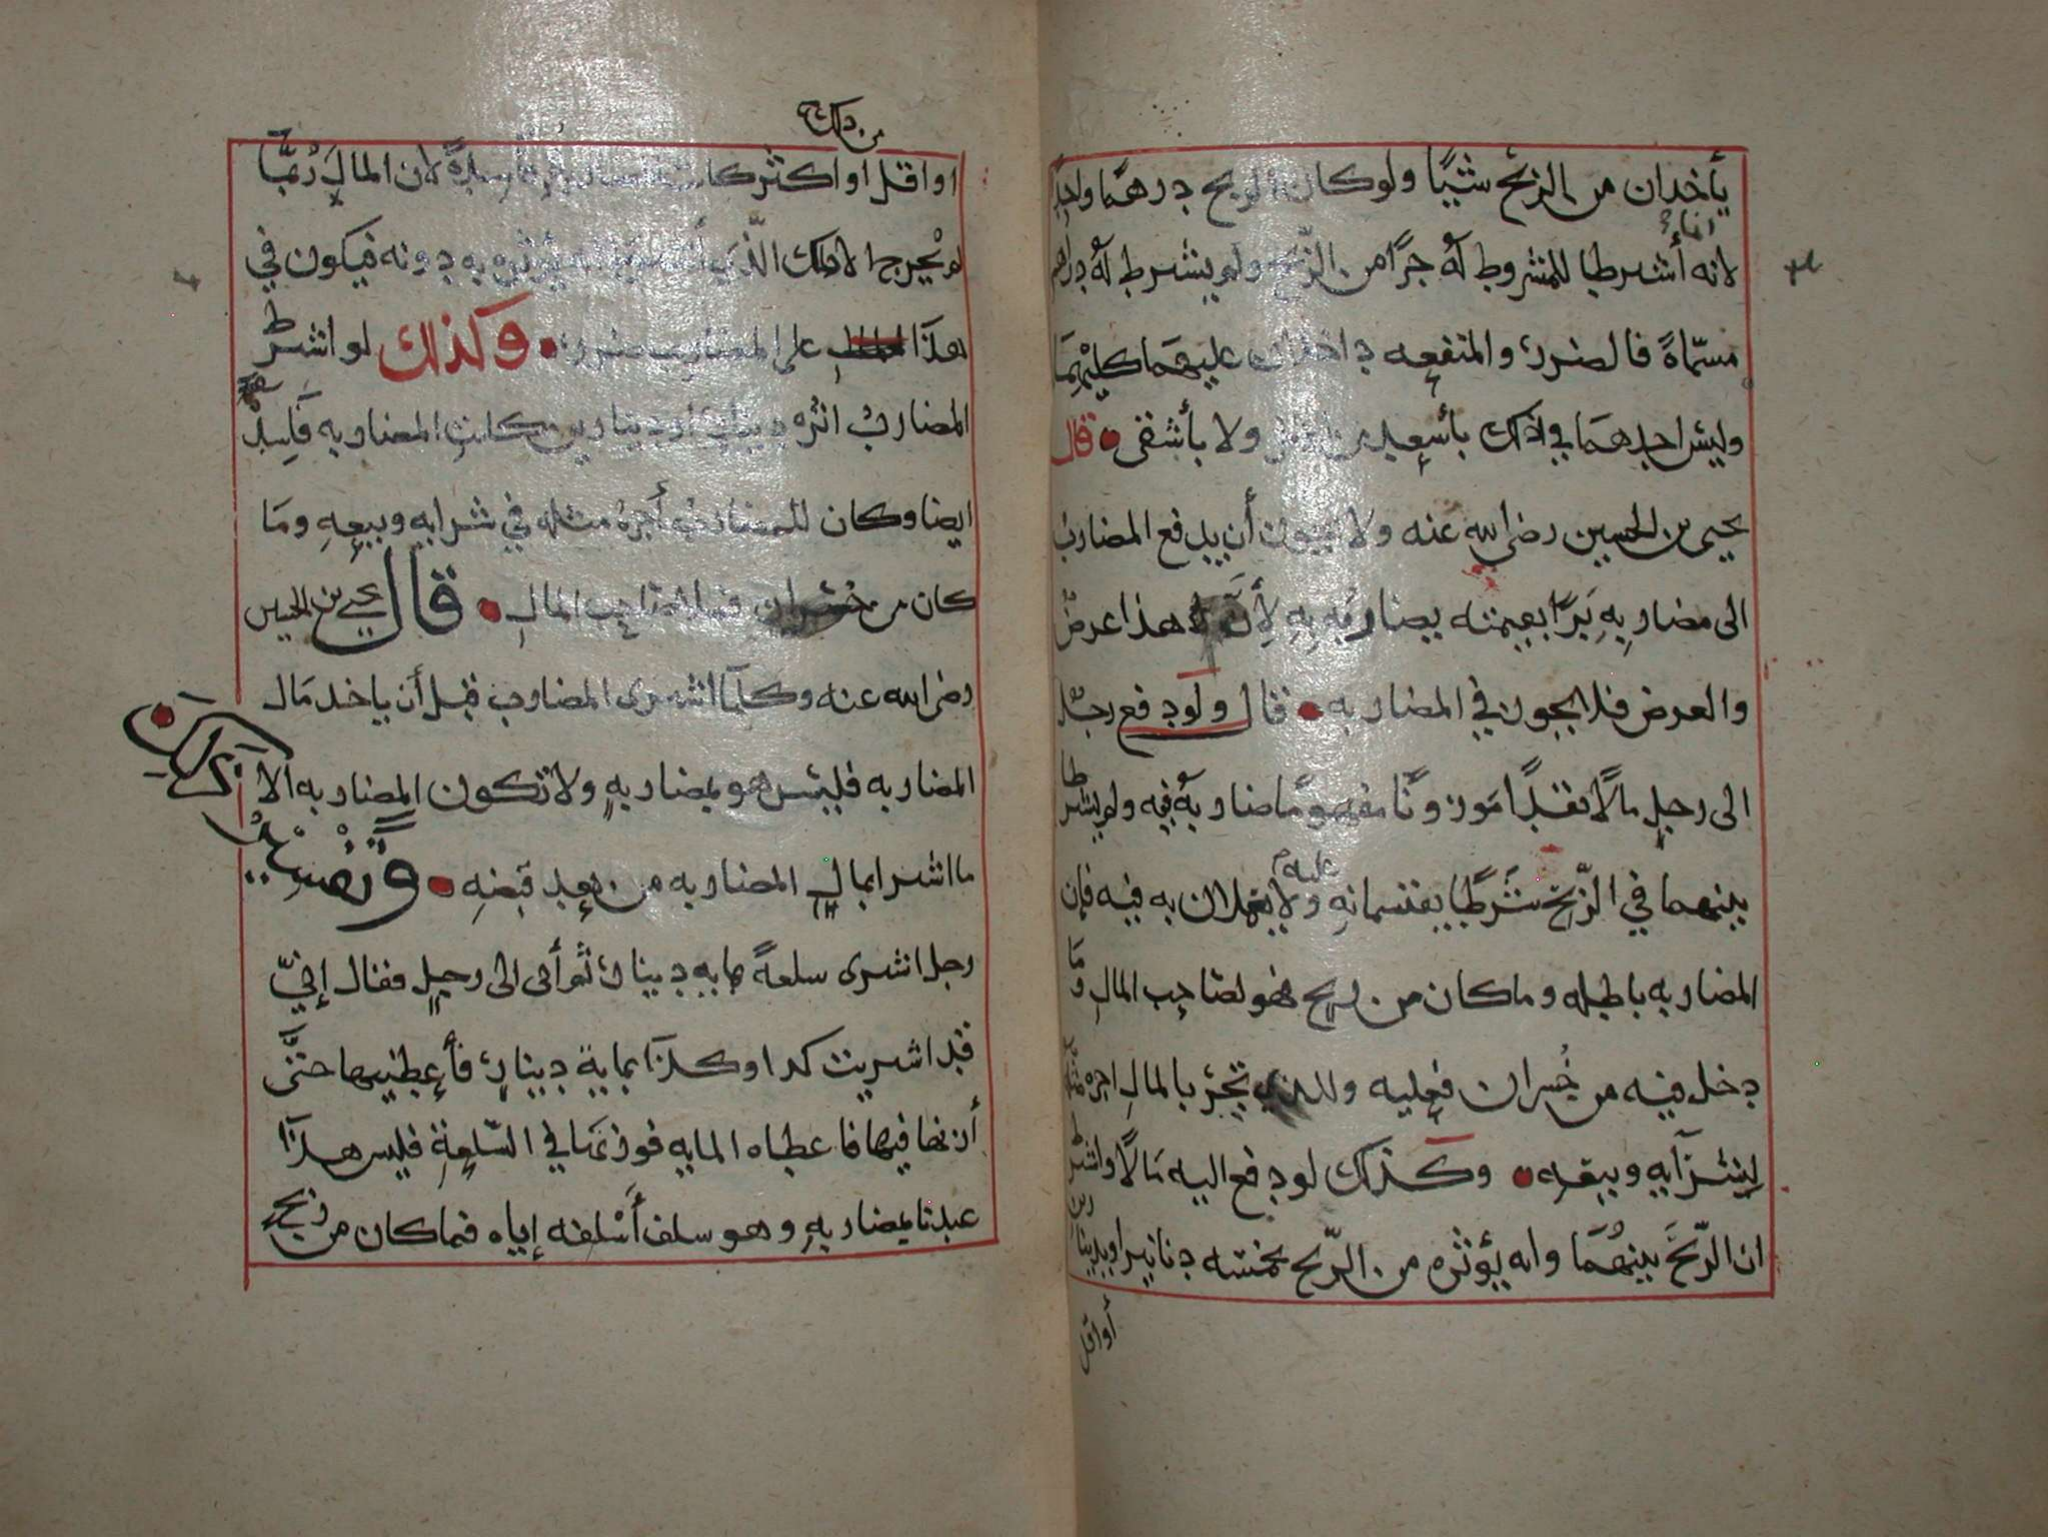 يأخذان من الربح شيئًا ولو كان الربح درهمًا واحدًا
لانه أشرطا للمشروط له جزًا من الربح ولم يشرط له دراهم
انما
مسمّاةً فالضرر والمنفعه داخلان عليهما كليهما
وليس احدهما في ذلك بأسعد من ولا بأشقى • قال
يحيى بن الحسين رضي الله عنه ولا يجوز أن يدفع المضارب
الى مضاربهِ بَزًا بقيمته يضاربه بهِ لأن هذا عرضٌ
والعرض فلا يجوز في المضاربه • قال ولو دفع رجل
الى رجلٍ مالًا نقدًا ضاربه فيه ولم يشرطا
بينهما في الرّبح شَرطًا يقتسمانه عليه ولا يعملان به فيه فإن
المضاربه باطله وما كان من ربح فهو لصاحب المالِ وَمَا
دخل فيه من خُسران فعليه وللذي تجر بالمالِ اجره مثله
لِشرآيه وبيعه • وكذلك لو دفع اليه مَالًا واشرط
ان الرّبحَ بينهُمَا وانه يؤثره من الرّبح بخمسَه دنانير او بدينارين
أو اقل
او اقل او اكثر كانت فاسدةً لأن المالَ رُبمّا
من ذلك
لم يُخرج الا ذلك الّذي به دونه فيكون في
هذا على المضارب ضرر • وكذلك لو اشرط
المضاربُ اثره دينار او دينارين كانت المضاربه فَاسِدة
ايضا وكان للمضارب أُجرهُ مثله في شرايه وبيعهِ ومَا
كان من خسران فهو لصاحب المالِ • قال يحيى بن الحسين
رضي الله عنه وكلمآ اشرى المضارب قبل أن ياخذ مَال
المضاربه فليس هو بمضاربهٍ ولا تكون المضاربه الا
ما اشرا بمالِ المضاربه من بعد قبضهِ • وتفسير ذلك
رجل اشرى سلعةً بمايه دينار ثم أتى الى رجلٍ فقال إنّي
قد اشريت كدا وكذا بمايةِ دينارٍ فأعطنيها حتَّى
أزنها فيها فاعطاه المايه فوزنها في السّلعةِ فليس هذَا
عندنا بمضاربهٍ وهو سلف أسْلفه إياه فما كان من ربحٍ